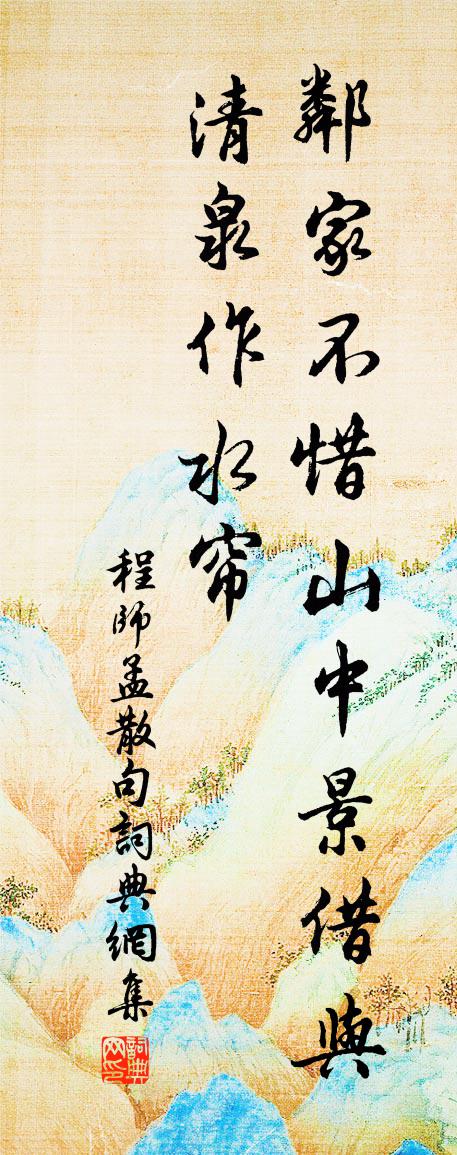 鄰家不惜山中景借與
清泉作水帘
程師孟散句詞典網集
詞典網印